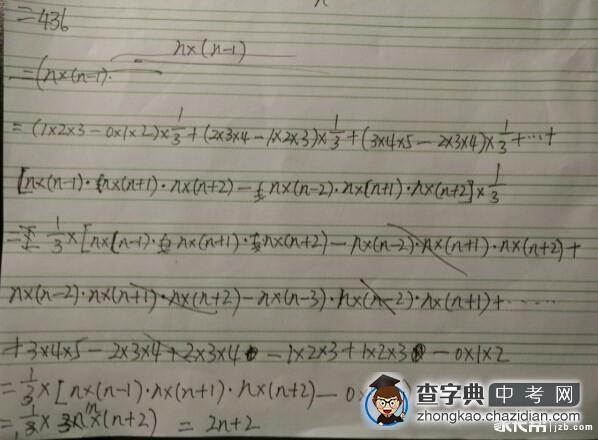 = 436
n×(n-1)
= (n×(n-1)·
= (1×2×3-0×1×2)×1/3+(2×3×4-1×2×3)×1/3+(3×4×5-2×3×4)×1/3+…+
[n×(n-1)·n×(n+1)·n×(n+2)-n×(n-2)·n×(n+1)·n×(n+2)]×1/3
= 1/3×[n×(n-1)·n×(n+1)·n×(n+2)-n×(n-2)·n×(n+1)·n×(n+2)+
n×(n-2)·n×(n+1)·n×(n+2)-n×(n-3)·n×(n-2)·n×(n+1)+……
+3×4×5-2×3×4+2×3×4-1×2×3+1×2×3-0×1×2
= 1/3×[n×(n-1)·n×(n+1)·n×(n+2)-0×
= 1/3× (n+2) = 2n+2
查字典 中考网
zhongkao.chazidian.com
jzb.com